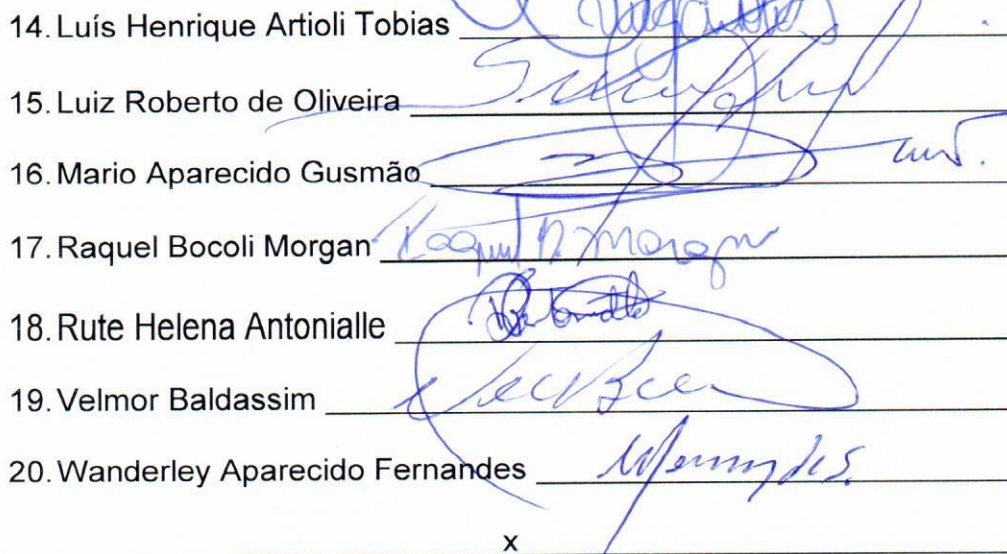 14. Luís Henrique Artioli Tobias
15. Luiz Roberto de Oliveira
16. Mario Aparecido Gusmão
17. Raquel Bocoli Morgan Raquel B. Morgan
18. Rute Helena Antonialle
19. Velmor Baldassim
20. Wanderley Aparecido Fernandes
x